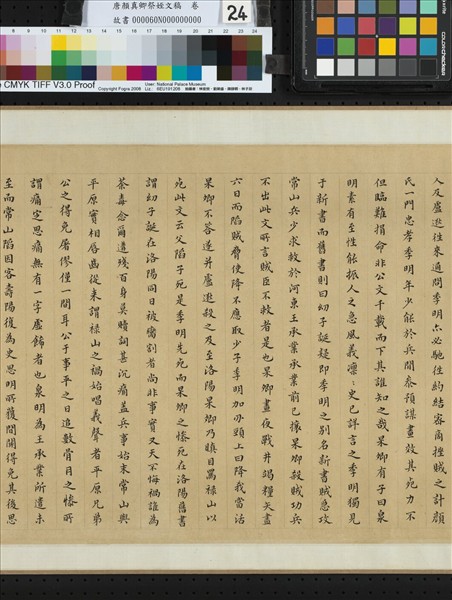 唐顏真卿祭姪文稿　卷
故書 000060N000000000
24
8 9 10 11 12 13 14 15 16 17 18 19 20 21 22 23 24
CMYK TIFF V3.0 Proof
Copyright Fogra 2008
User: National Palace Museum
colorchecker
人及盧逖往來通問季明亦必馳往約結密商挫賊之計顏
氏一門忠孝季明年少能於兵間叅預謀畫效其死力不
但臨難捐命非公文千載而下其誰知之哉杲卿有子曰泉
明素有至性能振人之急風義凜凜史已詳言之季明獨見
于新書而舊書則曰幼子誕疑即季明之別名新書賊急攻
常山兵少求救於河東王承業承業前已攘杲卿殺賊功兵
不出此文所言賊臣不救者是也杲卿晝夜戰井竭糧矢盡
六日而陷賊脅使降不應取少子季明加刃頸上曰降我當活
杲卿不荅遂并盧逖殺之及至洛陽杲卿乃瞋目罵祿山以
死此文云父陷子死是季明先死而杲卿之慘死在洛陽舊書
謂幼子誕在洛陽同日被害割者尚非事實又天不悔禍誰為
荼毒念爾遘殘百身莫贖詞甚沉痛盖兵事始末常山與
平原實相唇齒從来謂祿山之禍始唱義聲者平原兄弟
公之得免屠僇僅一間耳公于事平之日追數骨肉之慘所
謂痛定思痛無有一字虛飾者也泉明為王承業所遣未
至而常山陷因客壽陽後為史思明所獲間關得免其後思